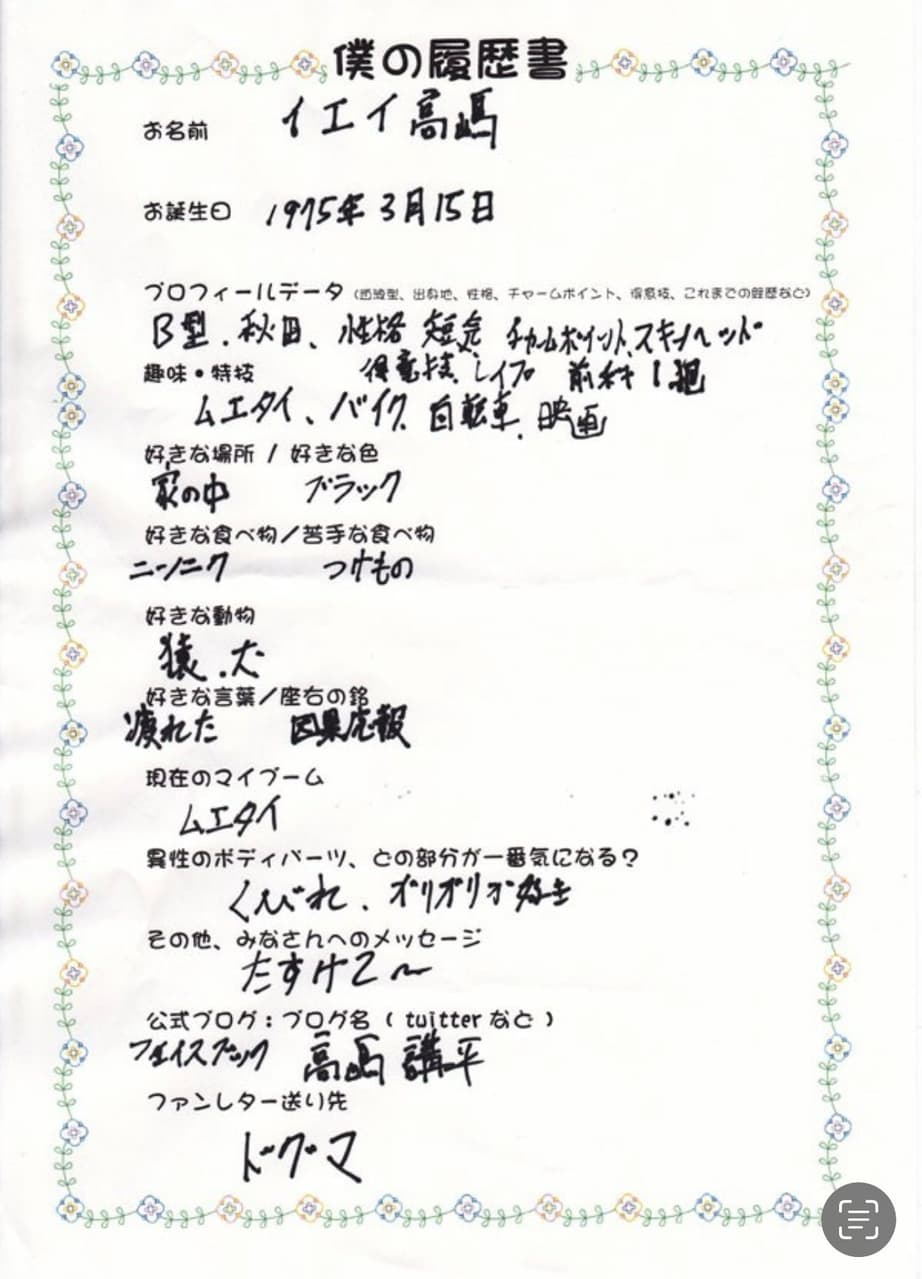 僕の履歴書
お名前 イエイ高嶋
お誕生日 1975年3月15日
プロフィールデータ (血液型、出身地、性格、チャームポイント、得意技、これまでの経歴など)
B型、秋田、性格 短気 チャームポイント、スキンヘッド
得意技、レイプ 前科1犯
趣味・特技
ムエタイ、バイク、自転車、映画
好きな場所 / 好きな色
家の中 ブラック
好きな食べ物/苦手な食べ物
ニンニク つけもの
好きな動物
猿、犬
好きな言葉/座右の銘
疲れた 因果応報
現在のマイブーム
ムエタイ
異性のボディパーツ、どの部分が一番気になる?
くびれ、ガリガリが好き
その他、みなさんへのメッセージ
たすけて〜
公式ブログ:ブログ名 ( twitterなど )
フェイスブック 高嶋 講平
ファンレター送り先
ドグマ